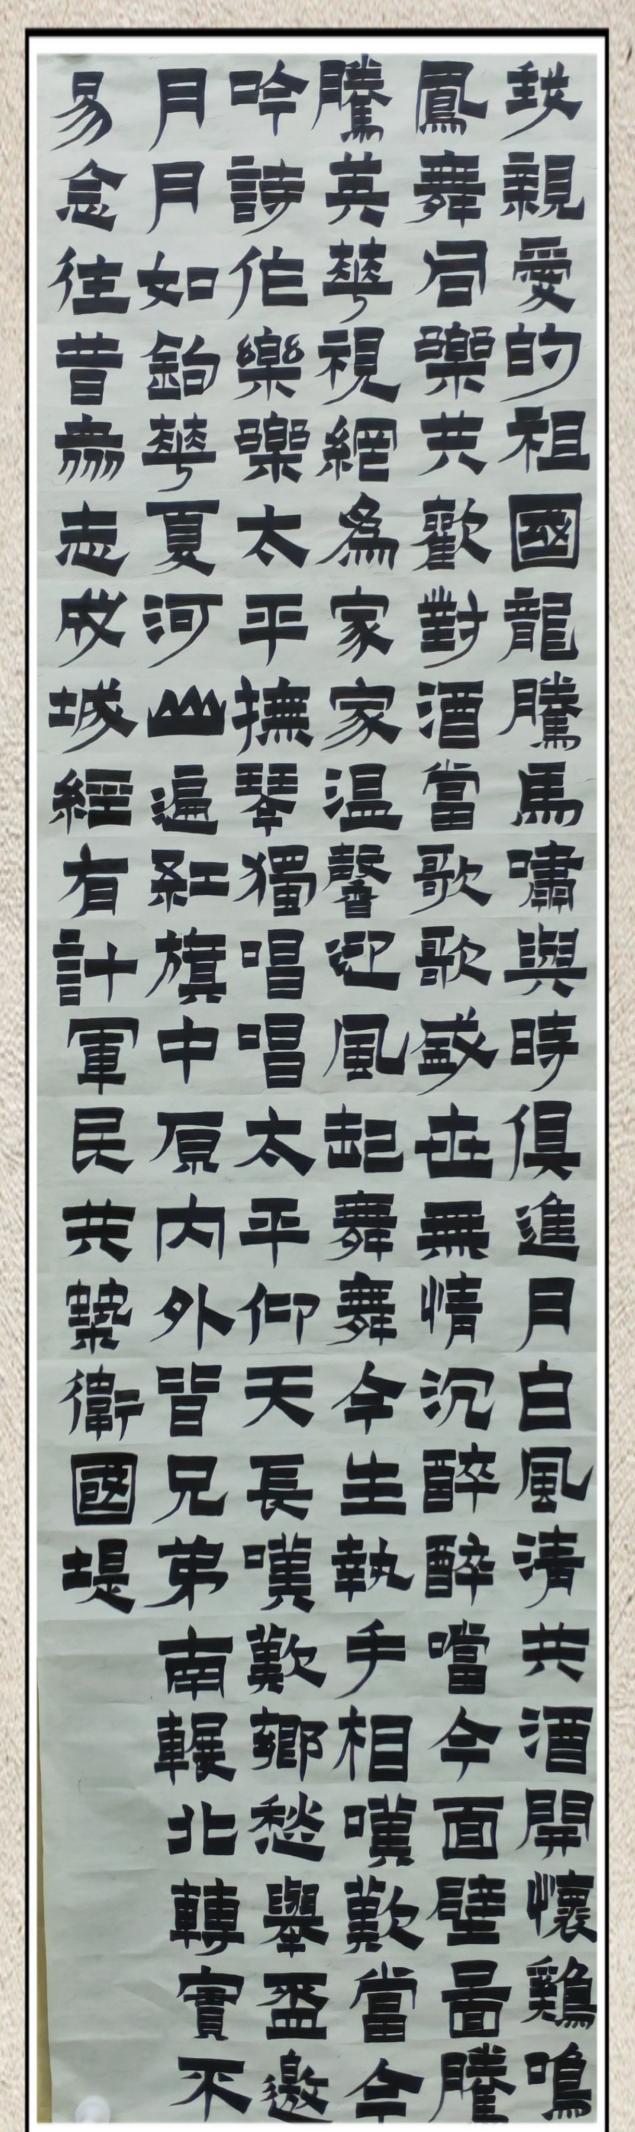 我親愛的祖國龍騰馬嘯與時俱進月白風清共酒開懷鷄鳴
鳳舞同樂共歡對酒當歌歌盛世無情沉醉醉噹今面壁啚騰
騰英華視網為家家温馨迎風起舞舞今生執手相嘆歎當今
吟詩作樂樂太平撫琴獨唱唱太平仰天長嘆歎鄉愁舉盃邀
月月如鈎華夏河山遍紅旗中原内外皆兄弟南輾北轉實不
易念往昔衆志成城經有計軍民共築衛國堤